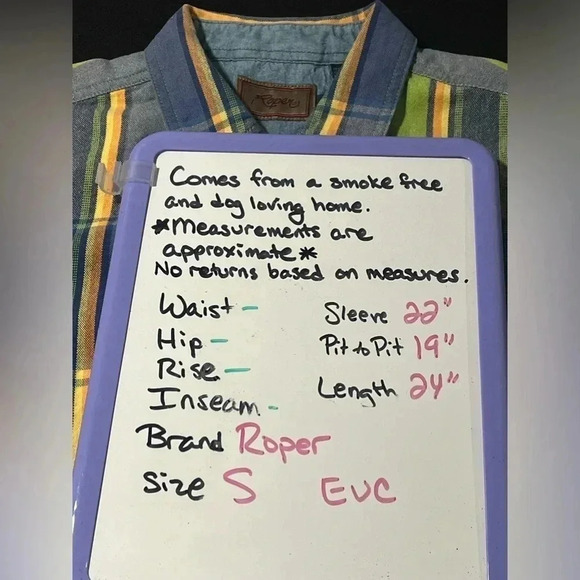 Roper
Comes from a smoke free
and dog loving home.
*Measurements are
approximate*
No returns based on measures.
Waist -
Hip -
Rise -
Inseam -
Sleeve 22"
Pit to Pit 19"
Length 24"
Brand Roper
Size S
EUC